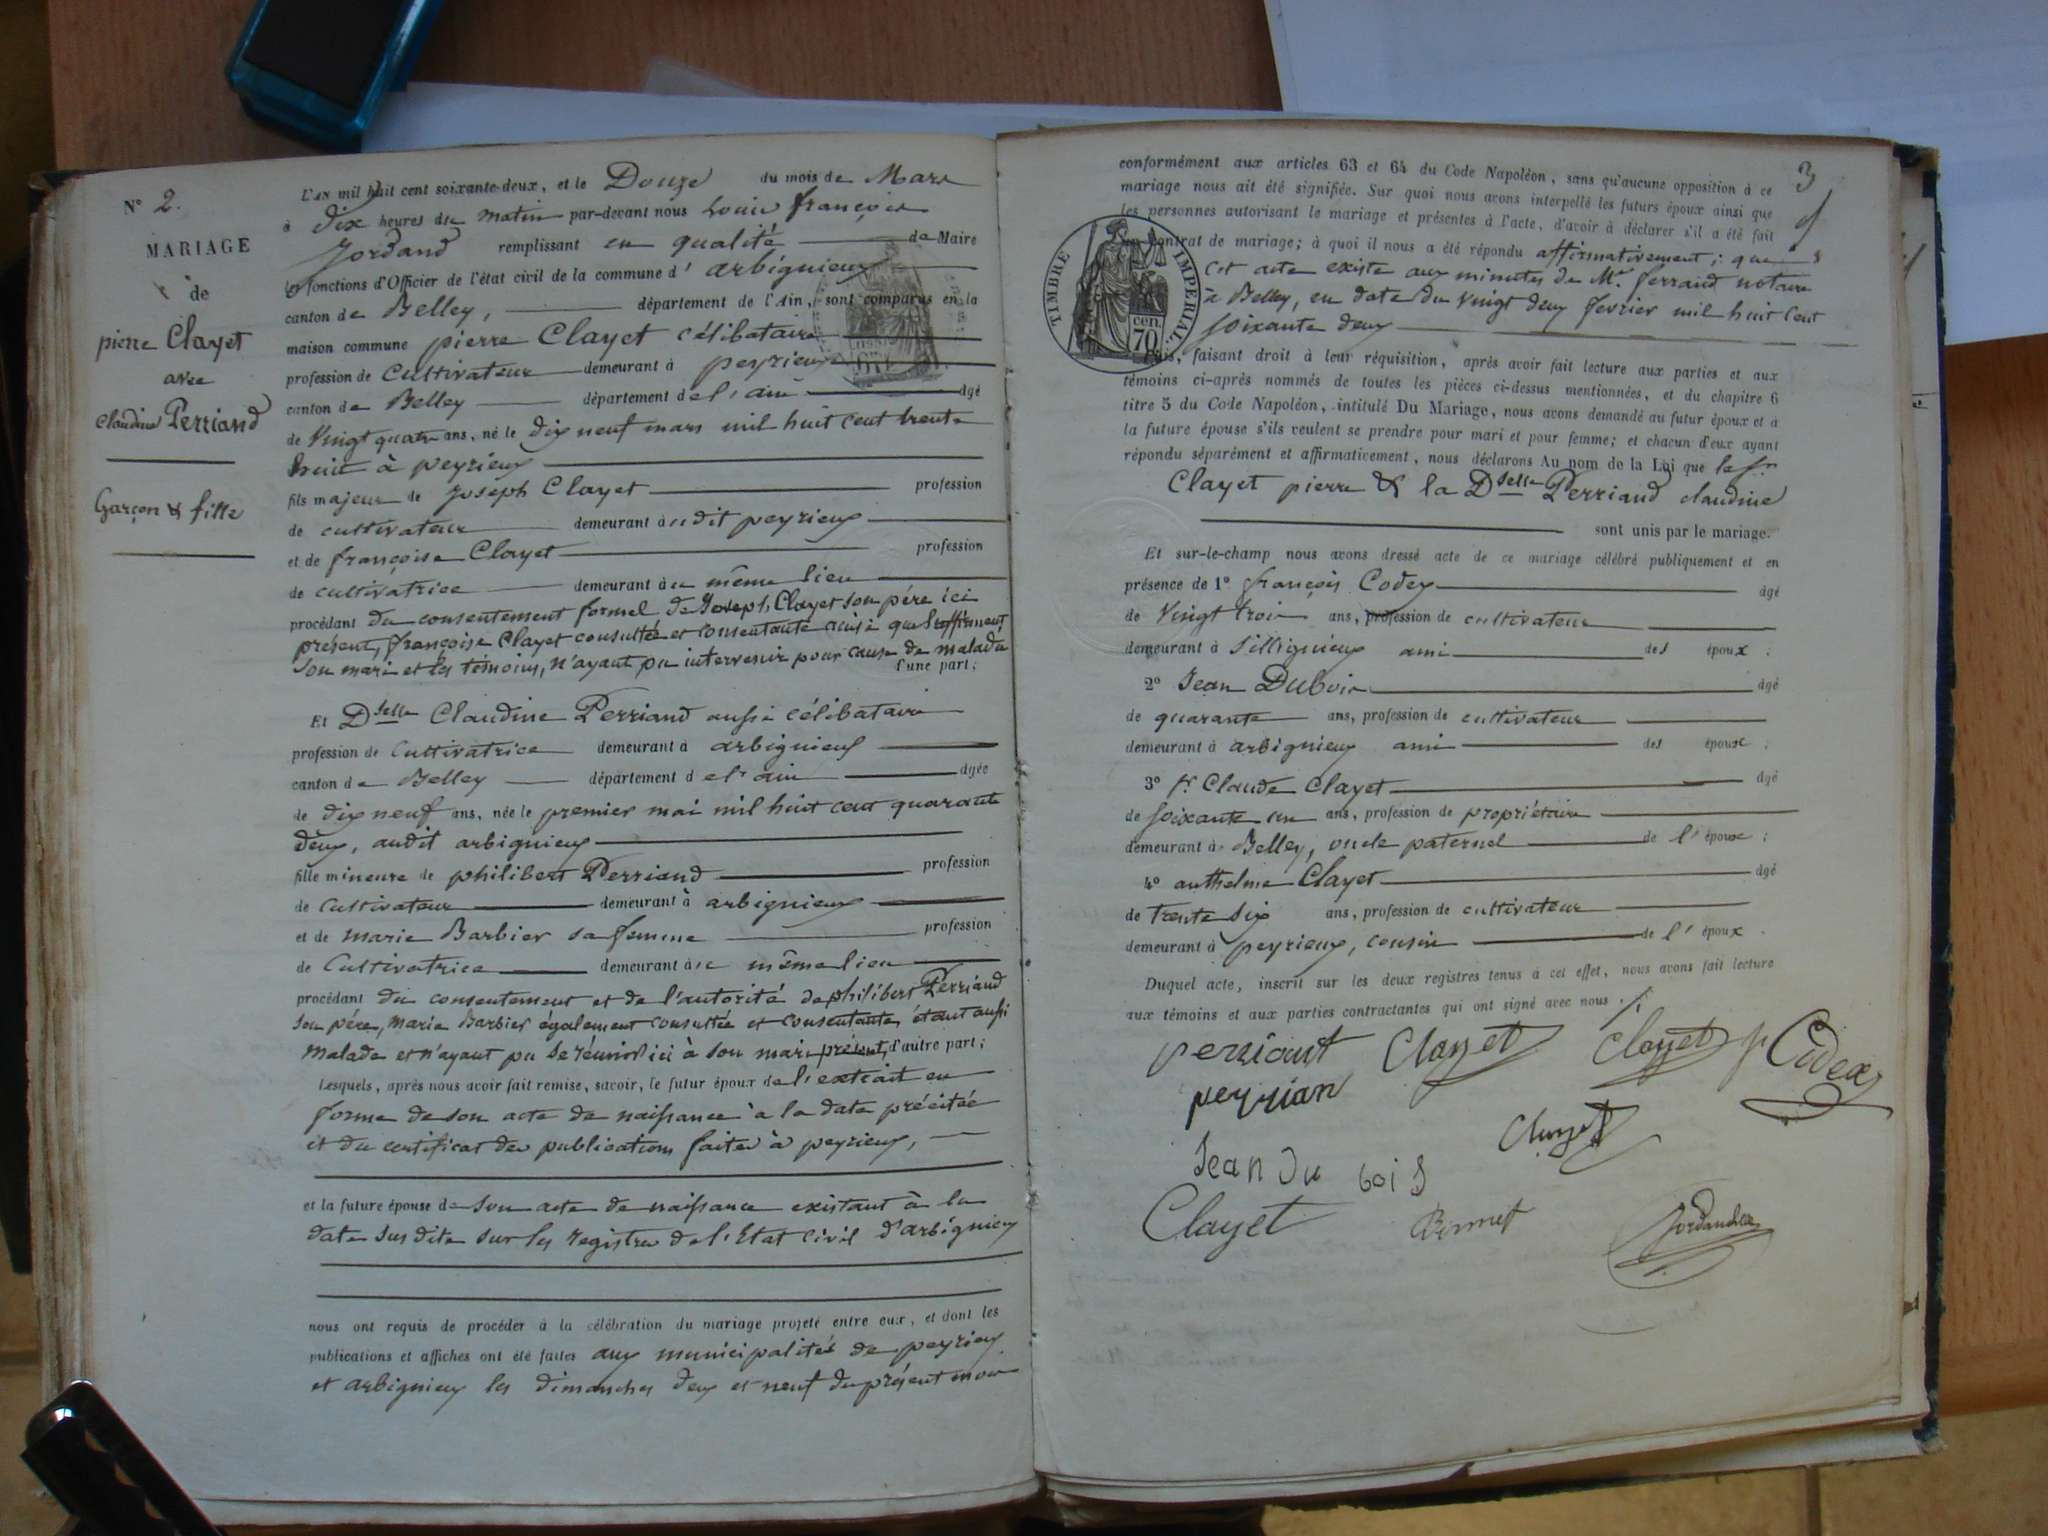 N° 2.
MARIAGE
de
pierre Clayet
avec
claudine Perriand
Garçon & fille
L'AN mil huit cent soixante-deux, et le Douze du mois de Mars
à dix heures du matin par-devant nous Louis françois
Jordand remplissant en qualité de Maire
les fonctions d'Officier de l'état civil de la commune d'arbignieux
canton de Belley, département de l'Ain, sont comparus en la
maison commune pierre Clayet célibataire
profession de Cultivateur demeurant à peyrieux
canton de Belley département de l'ain âgé
de Vingt quatre ans, né le dix neuf mars mil huit cent trente
huit à peyrieux
fils majeur de Joseph Clayet profession
de cultivateur demeurant audit peyrieux
et de françoise Clayet profession
de cultivatrice demeurant au même lieu
procédant du consentement formel de Joseph Clayet son père ici
présent, françoise Clayet consultée et consentante ainsi que l'affirment
son mari et les témoins, n'ayant pu intervenir pour cause de maladie
d'une part;
Et Dselle Claudine Perriand aussi célibataire
profession de Cultivatrice demeurant à arbignieux
canton de Belley département de l'ain âgée
de dix neuf ans, née le premier mai mil huit cent quarante
deux, audit arbignieux
fille mineure de philibert Perriand profession
de Cultivateur demeurant à arbignieux
et de marie Barbier sa femme profession
de Cultivatrice demeurant au même lieu
procédant du consentement et de l'autorité de philibert Perriand
son père, marie Barbier également consultée et consentante, étant aussi
malade et n'ayant pu se réunir ici à son mari présent, d'autre part;
Lesquels, après nous avoir fait remise, savoir, le futur époux de l'extrait en
forme de son acte de naissance à la date précitée
et du certificat des publications faites à peyrieux,
et la future épouse de son acte de naissance existant à la
date sus dite sur les registres de l'Etat civil d'arbignieux
nous ont requis de procéder à la célébration du mariage projeté entre eux, et dont les
publications et affiches ont été faites aux municipalités de peyrieux
et arbignieux les dimanches deux et neuf du présent mois
3
conformément aux articles 63 et 64 du Code Napoléon, sans qu'aucune opposition à ce
mariage nous ait été signifiée. Sur quoi nous avons interpellé les futurs époux ainsi que
les personnes autorisant le mariage et présentes à l'acte, d'avoir à déclarer s'il a été fait
un contrat de mariage; à quoi il nous a été répondu affirmativement; que
cet acte existe aux minutes de Me. ferrand notaire
à Belley, en date du vingt deux fevrier mil huit Cent
soixante deux
TIMBRE IMPÉRIAL
cen. 70
Puis, faisant droit à leur réquisition, après avoir fait lecture aux parties et aux
témoins ci-après nommés de toutes les pièces ci-dessus mentionnées, et du chapitre 6
titre 5 du Code Napoléon, intitulé Du Mariage, nous avons demandé au futur époux et à
la future épouse s'ils veulent se prendre pour mari et pour femme; et chacun d'eux ayant
répondu séparément et affirmativement, nous déclarons Au nom de la Loi que le sr
Clayet pierre & la Dselle Perriand claudine
sont unis par le mariage.
Et sur-le-champ nous avons dressé acte de ce mariage célébré publiquement et en
présence de 1° françois Codex âgé
de Vingt trois ans, profession de cultivateur
demeurant à Sillignieux ami des époux;
2° Jean Dubois âgé
de quarante ans, profession de cultivateur
demeurant à arbignieux ami des époux;
3° sr. Claude Clayet âgé
de soixante un ans, profession de propriétaire
demeurant à Belley, oncle paternel de l'époux;
4° anthelme Clayet âgé
de trente six ans, profession de cultivateur
demeurant à peyrieux, cousin de l'époux.
Duquel acte, inscrit sur les deux registres tenus à cet effet, nous avons fait lecture
aux témoins et aux parties contractantes qui ont signé avec nous ./.
perriant Clayet Clayet f Codex
peyrian
Clayet
Jean Du bois
Clayet Bonnet Jordand